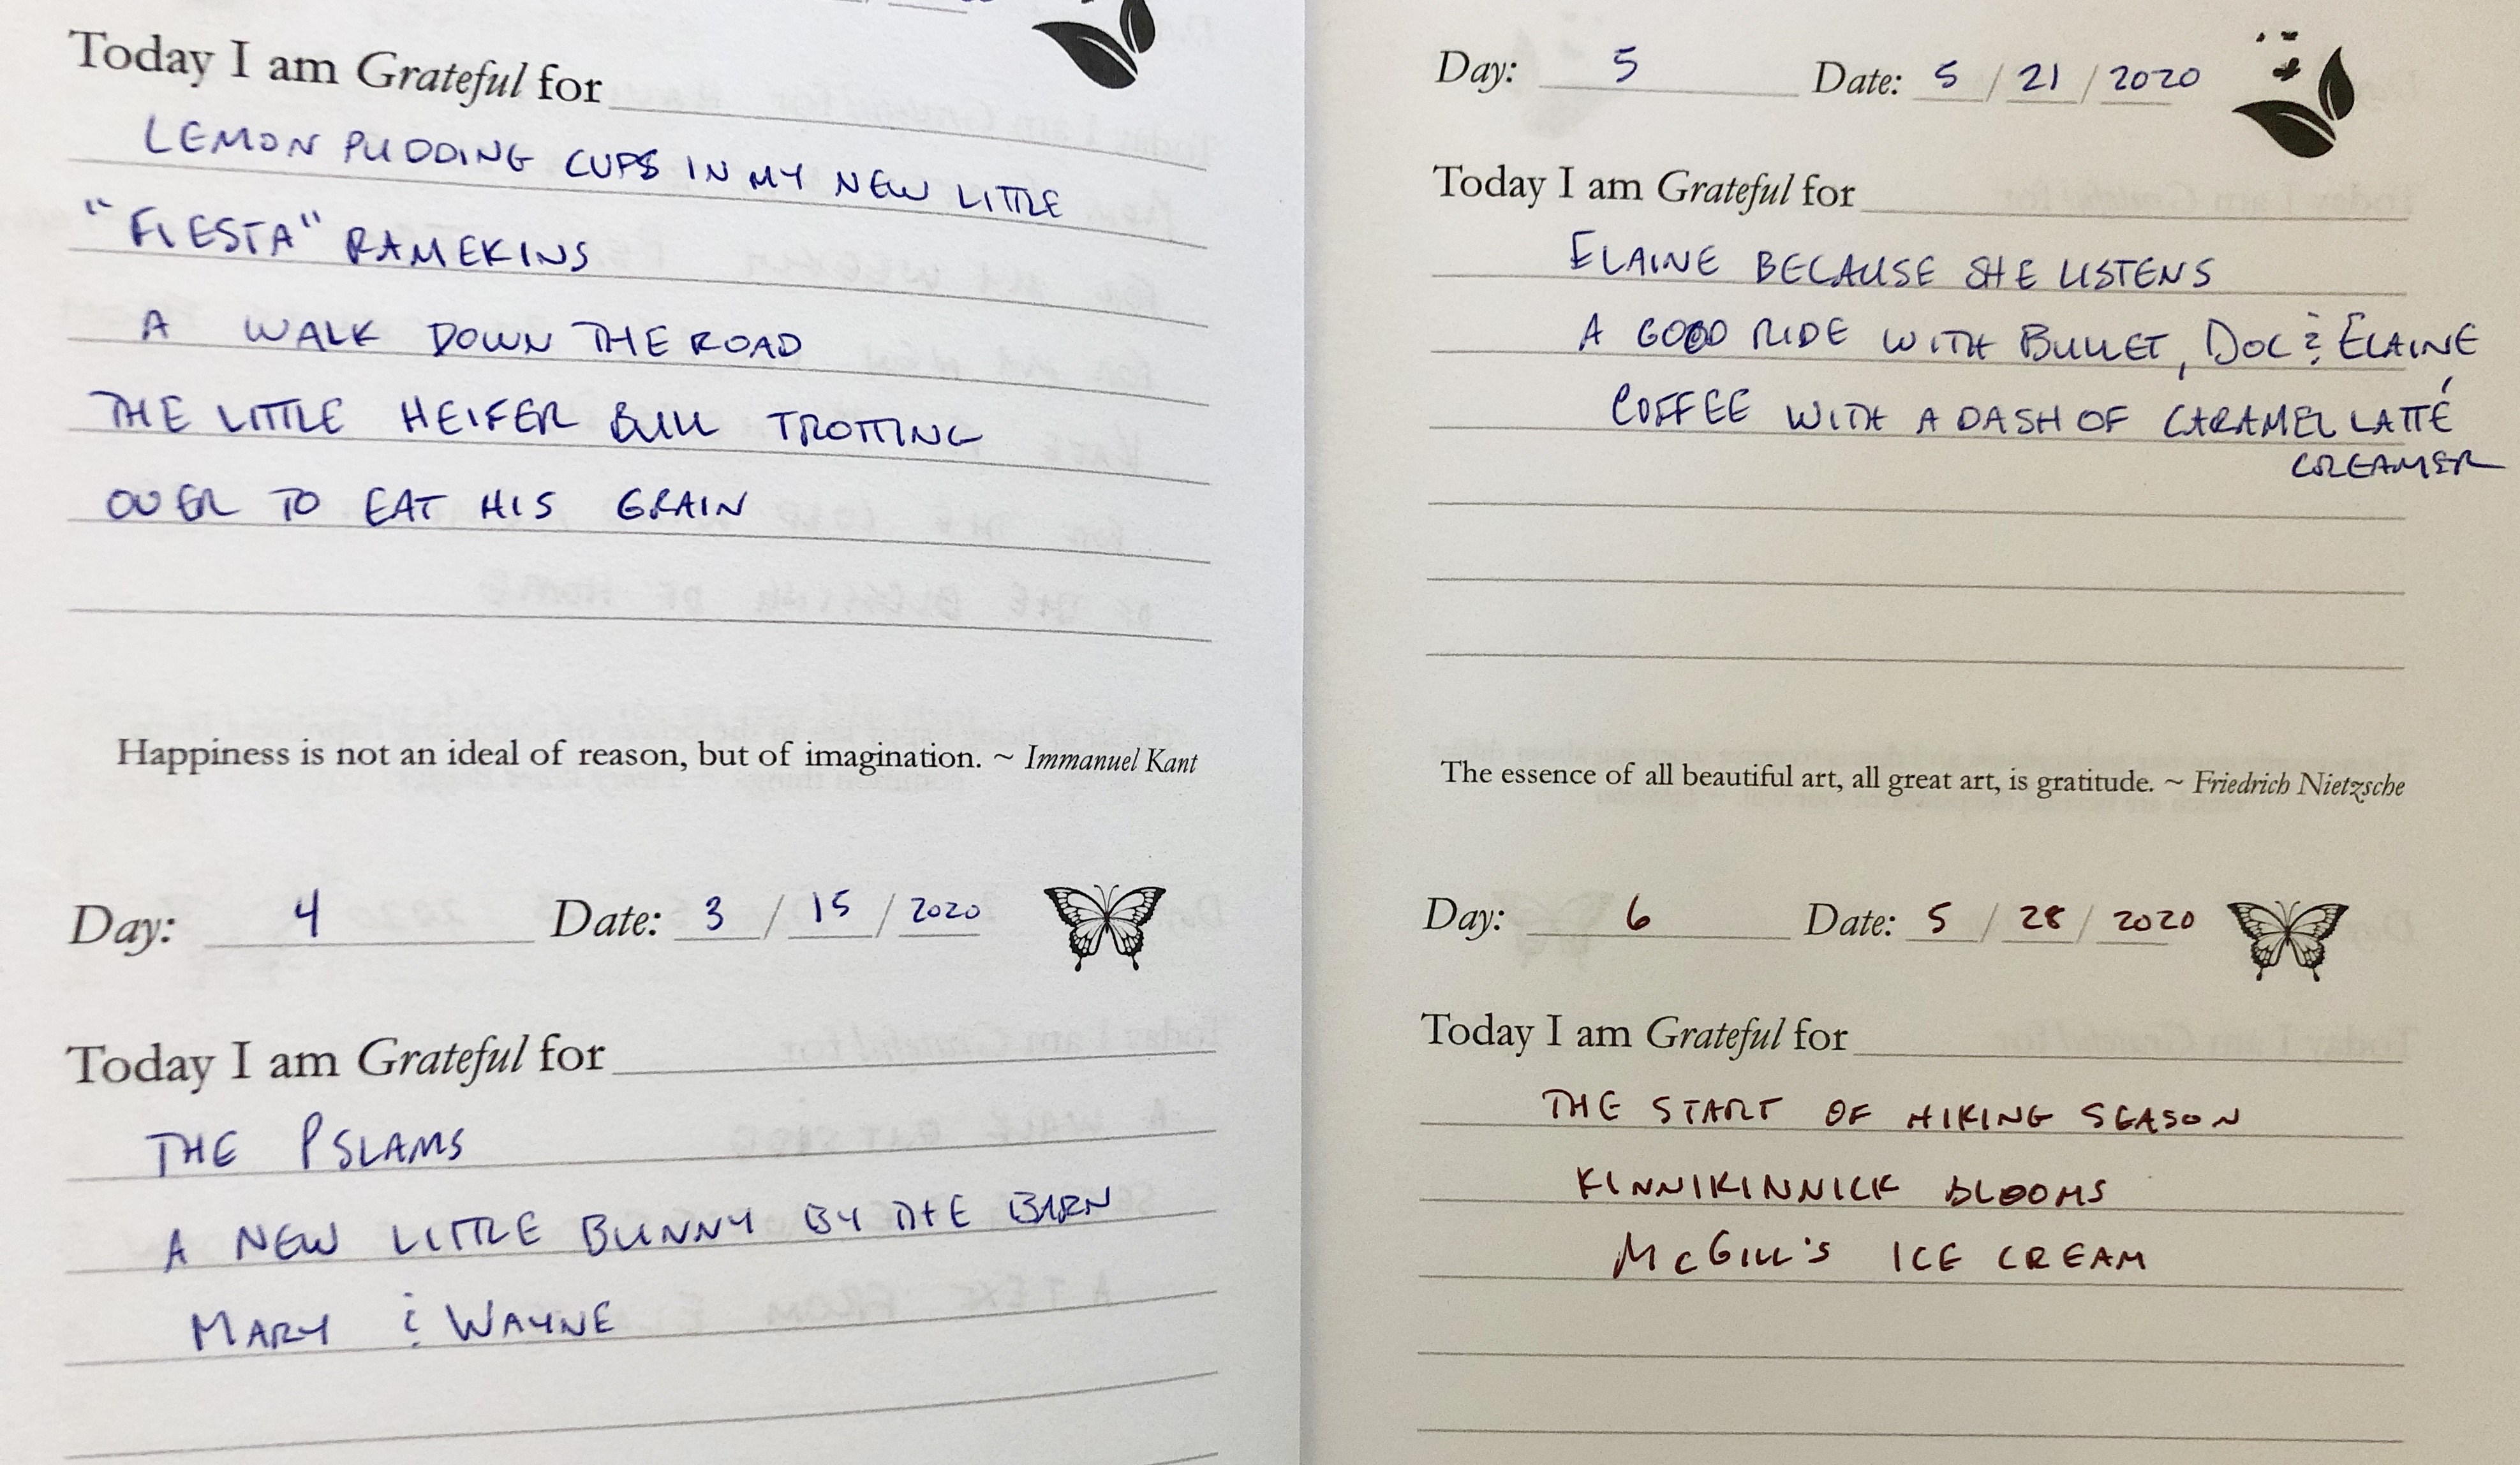 Today I am Grateful for
LEMON PUDDING CUPS IN MY NEW LITTLE
"FIESTA" RAMEKINS
A WALK DOWN THE ROAD
THE LITTLE HEIFER BULL TROTTING
OVER TO EAT HIS GRAIN
Happiness is not an ideal of reason, but of imagination. ~ Immanuel Kant
Day: 4 Date: 3 / 15 / 2020
Today I am Grateful for
THE PSLAMS
A NEW LITTLE BUNNY BY THE BARN
MARY & WAYNE
Day: 5 Date: 5 / 21 / 2020
Today I am Grateful for
ELAINE BECAUSE SHE LISTENS
A GOOD RIDE WITH BULLET, DOC & ELAINE
COFFEE WITH A DASH OF CARAMEL LATTÉ
CREAMER
The essence of all beautiful art, all great art, is gratitude. ~ Friedrich Nietzsche
Day: 6 Date: 5 / 28 / 2020
Today I am Grateful for
THE START OF HIKING SEASON
KINNIKINNICK BLOOMS
McGILL'S ICE CREAM